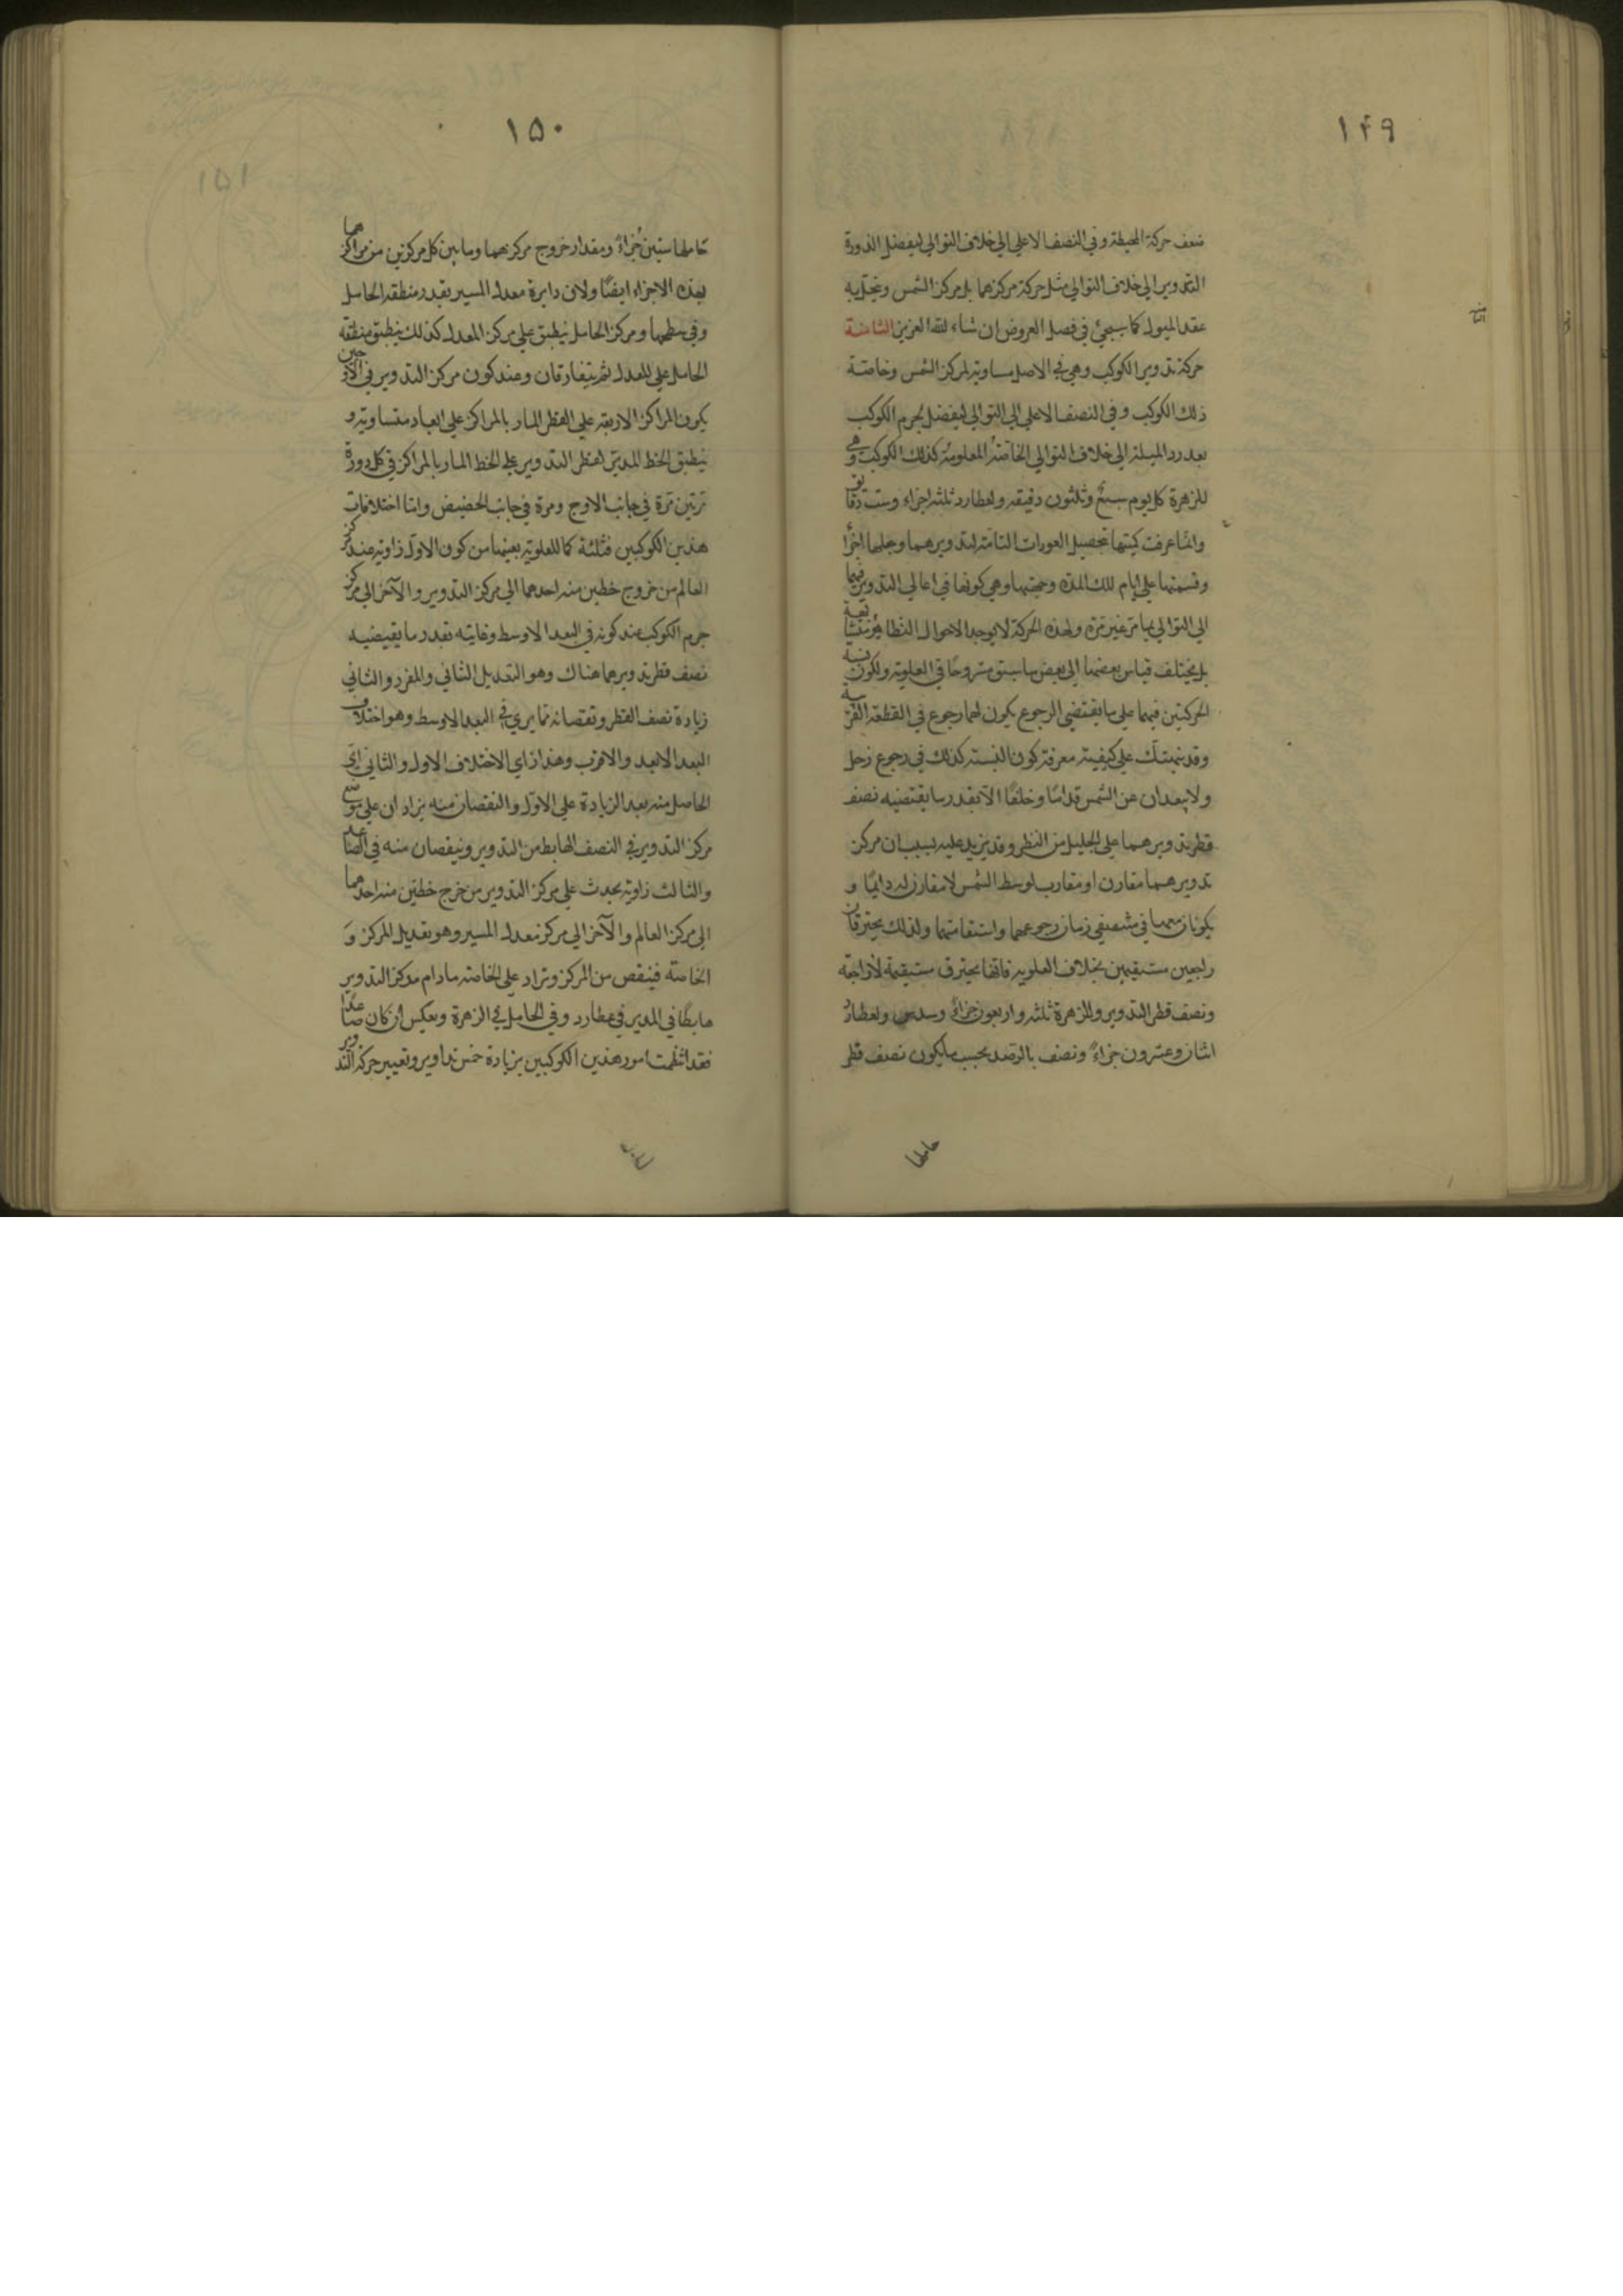 ١٤٩
ضعف حركة المحيطة وفي النصف الاعلي الي خلاف التوالي ليفضل الذورة
التدوير الي خلاف التوالي مثل حركة مركزهما بل مركز الشمس
عقد الميول كما سيجئ في فصل العروض ان شاء الله العزيز الثامنة
حركة تدوير الكوكب وهي في الاصل مساوية لمركز الشمس وخاصة
ذلك الكوكب وفي النصف الاعلي الي التوالي ليفضل لجرم الكوكب
بعد رد الميلة الي خلاف التوالي الخاصة المعلومة كذلك الكوكب وهي
للزهرة كل يوم سبع وثلثون دقيقه ولعطارد ثلثه اجزاء وست دقايق
وانما عرفت كيتها تحصيل العورات التامة لتدويرهما وجلها اجزأ
وقسمتها علي ايام تلك المدة وجهتها وهي كونها في اعالي التدوير فيهما
الي التوالي بما مر غير مرة ولهذه الحركة لا يوجد الاحوال النظائر متشابهة
بل يختلف قياس بعضها الي بعض ما سبق مشروحًا في العلوية ولكون نسبة
الحركتين فيهما علي ما يقتضي الرجوع يكون لهما رجوع في القطعة القريبة
وقد نبهتك علي كيفية معرفة كون النسبة كذلك في رجوع زحل
ولا يبعدان عن الشمس قدامًا وخلفًا الا بقدر ما يقتضيه نصف
قطر تدويرهما علي الجليل من النظر وقد يزيد عليه بسبب ان مركز
تدويرهما مقارن او مقارب لوسط الشمس لا مقارن له دايمًا و
يكونان معها في منتصفي زمان رجوعهما واستقامتهما ولذلك يحترقان
راجعين مستقيمين بخلاف العلوية فانها يحترق مستقيمة لا راجعة
ونصف قطر التدوير وللزهرة ثلثه واربعون جزاءً وسدس ولعطارد
اثنان وعشرون جزاءً ونصف بالرصد بحسب ما يكون نصف قطر
حاملها
١٥٠
حاملها ستين جزاءً ومقدار خروج مركزهما وما بين كل مركزين من مراكزهما
بهذه الاجزاء ايضًا ولان دايرة معدل المسير بقدر منطقه الحامل
وفي سطحها ومركز الحامل ينطبق علي مركز المعدل كذلك ينطبق منطقه
الحامل علي المعدل ثم يتفارقان وعند كون مركز التدوير في الاوجين
يكون المراكز الاربعة علي القطر المار بالمراكز علي ابعاد متساوية و
ينطبق الخط المدير لقطر التدوير علي الخط المار بالمراكز في كل دورة
مرتين مرة في جانب الاوج ومرة في جانب الحضيض واما اختلافات
هذين الكوكبين فثلثة كما للعلوية بعينها من كون الاول زاوية عند مركز
العالم من خروج خطين منه احدهما الي مركز التدوير والآخر الي مركز
جرم الكوكب عند كونه في البعد الاوسط وغايته بقدر ما يقيضيه
نصف قطر تدويرهما هناك وهو التعديل الثاني والمفرد والثاني
زيادة نصف القطر ونقصانه مما يري في البعد الاوسط وهو اختلاف
البعد الابعد والاقرب وهذان اي الاختلاف الاول والثاني اي
الحاصل منه بعد الزيادة علي الاول والنقصان منه يزادان علي موضع
مركز التدوير في النصف الهابط من التدوير وينقصان منه في الصاعد
والثالث زاوية يحدث علي مركز التدوير من خرج خطين منه احدهما
الي مركز العالم والآخر الي مركز معدل المسير وهو تعديل المركز و
الخاصة فينقص من المركز وتزاد علي الخاصة ما دام مركز التدوير
هابطًا في المدير في عطارد وفي الحامل في الزهرة وبعكس ان كان صاعدًا
فقد انتظمت امور هذين الكوكبين بزيادة خمس تداوير وتغيير حركة التدوير
١٥١